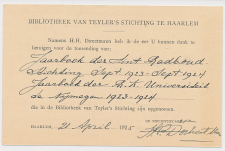 BIBLIOTHEEK VAN TEYLER'S STICHTING TE HAARLEM
Namens H.H. Directeuren heb ik de eer U kunnen dank te
betuigen voor de toezending van:
Jaarboek der Sint Radboud
Stichting Sept. 1923 - Sept 1924
Jaarboek der R.K. Universiteit
te Nijmegen 1923-1924.
die in de Bibliotheek van Teyler's Stichting zijn opgenomen.
HAARLEM, 21 April 1925